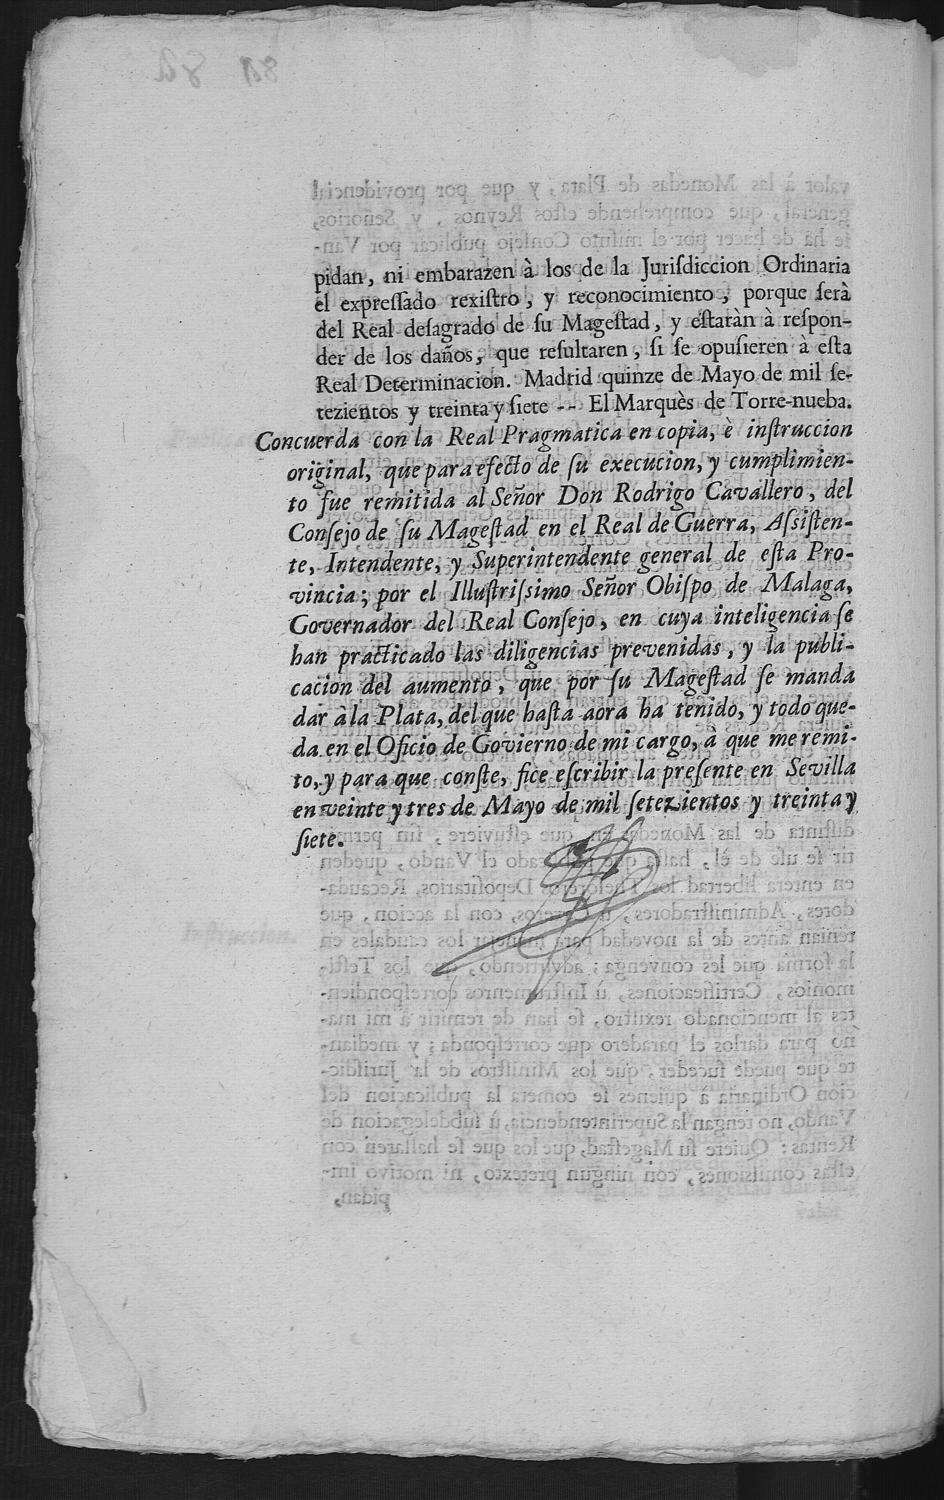 pidan, ni embarazen à los de la Juriſdiccion Ordinaria
el expreſſado rexiſtro, y reconocimiento, porque ſerà
del Real deſagrado de ſu Mageſtad, y eſtaràn à reſpon-
der de los daños, que reſultaren, ſi ſe opuſieren à eſta
Real Determinacion. Madrid quinze de Mayo de mil ſe-
tezientos y treinta y ſiete -- El Marquès de Torre-nueba.
Concuerda con la Real Pragmatica en copia, è inſtruccion
original, que para efecto de ſu execucion, y cumplimien-
to fue remitida al Señor Don Rodrigo Cavallero, del
Conſejo de ſu Mageſtad en el Real de Guerra, Aſsiſten-
te, Intendente, y Superintendente general de eſta Pro-
vincia; por el Illuſtriſsimo Señor Obiſpo de Malaga,
Governador del Real Conſejo, en cuya inteligencia ſe
han practicado las diligencias prevenidas, y la publi-
cacion del aumento, que por ſu Mageſtad ſe manda
dar à la Plata, del que haſta aora ha tenido, y todo que-
da en el Oficio de Govierno de mi cargo, à que me remi-
to, y para que conſte, fice eſcribir la preſente en Sevilla
en veinte y tres de Mayo de mil ſetezientos y treinta y
ſiete.